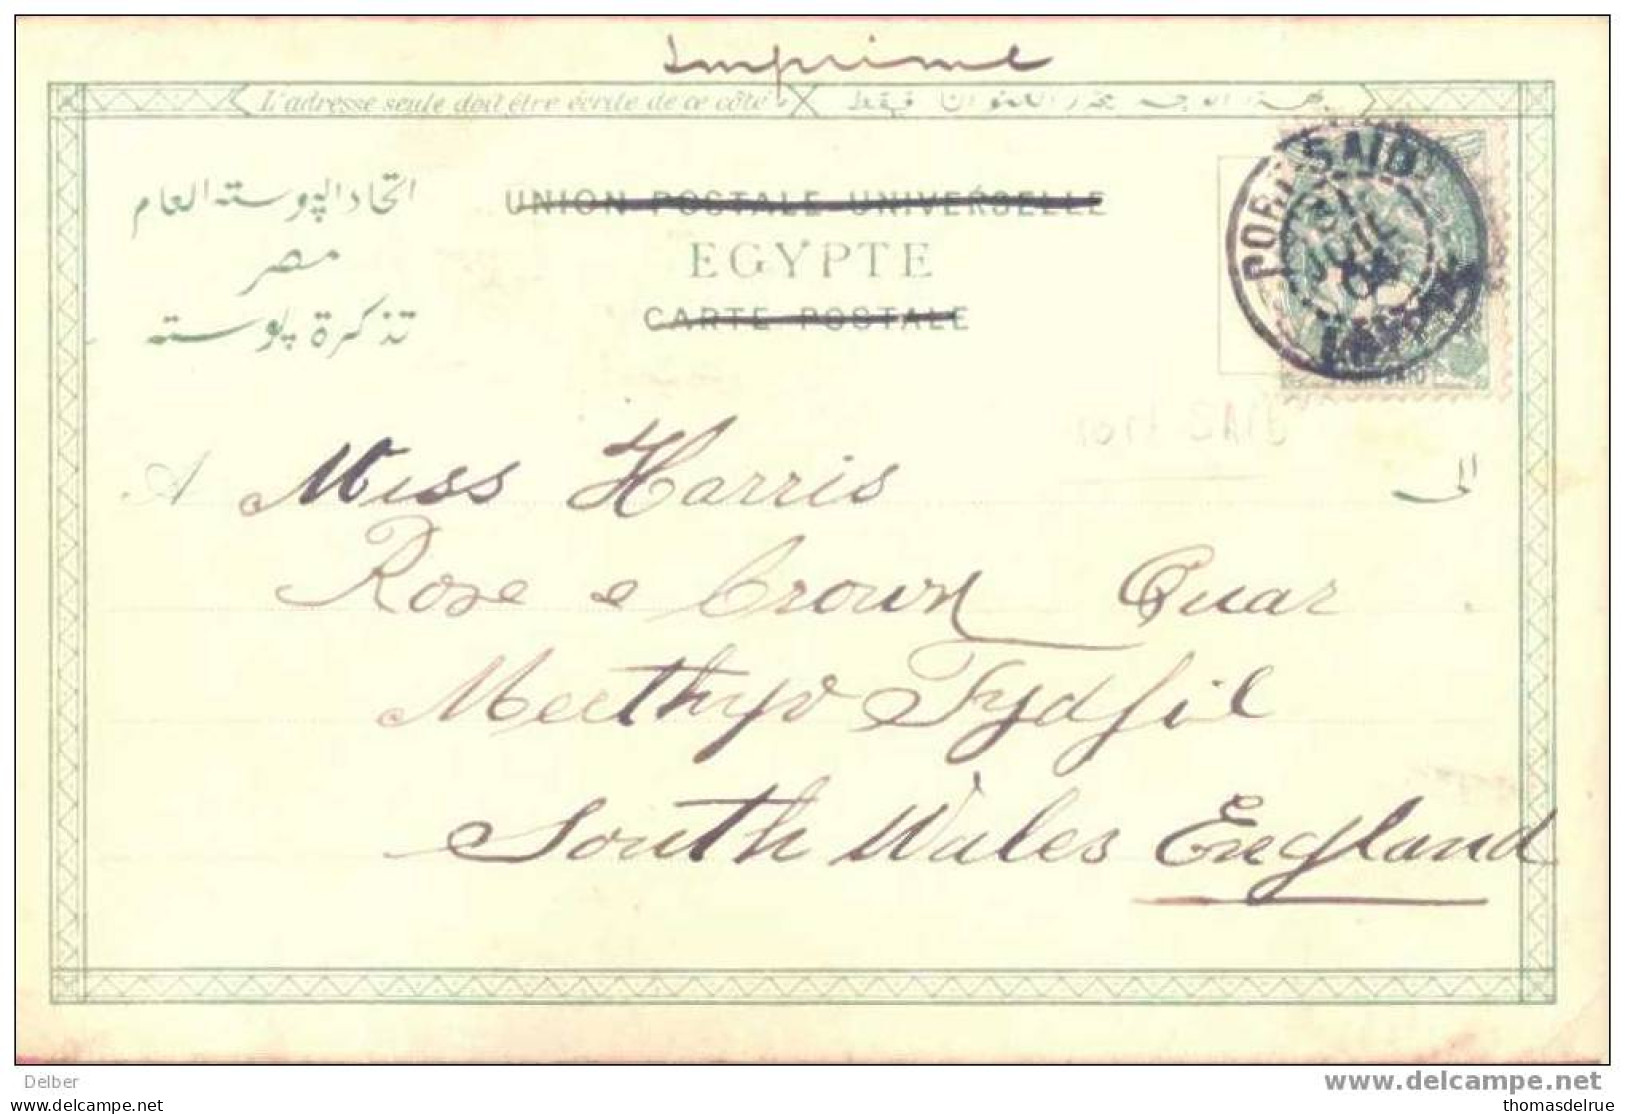 Imprime
L'adresse seule doit être écrite de ce côté
اتحاد البوسته العام
UNION POSTALE UNIVERSELLE
مصر
EGYPTE
تذكرة بوسته
CARTE POSTALE
PORT SAID
JUIL
04
PORT-SAID
A Miss Harris الى
Rose & Crown Quar
Merthyr Tydfil
South Wales England
Delber
www.delcampe.net
thomasdelrue